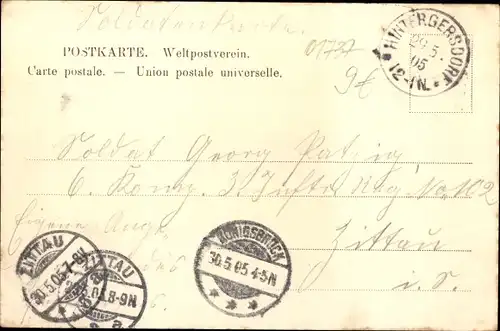 Soldatenkarte.
POSTKARTE. Weltpostverein.
Carte postale. — Union postale universelle.
01737
9€
HINTERGERSDORF
29 5.
05
12-1N.
Soldat Georg
6. Komp. 3. Inftr. Reg. No 102
Zittau
i. S.
Eigene Ang.
des
ZITTAU
30.5.05.7-8V.
ZITTAU
8-9N
a
KÖNIGSBRÜCK
30.5.05.4-5N
* * *